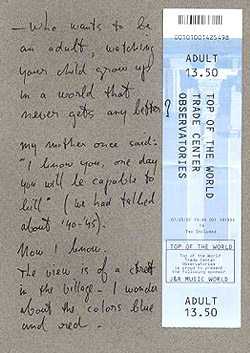 — Who wants to be
an adult, watching
your child grow up
in a world that
never gets any better?
my mother once said:
"I know you, one day
you will be capable to
kill" (we had talked
about '40-'45).
Now I know.
The view is of a street
in the village - I wonder
about the colors blue
and red.
00101001425498
ADULT
13.50
TOP OF THE WORLD
TRADE CENTER
OBSERVATORIES
Tax Included
TOP OF THE WORLD
Top of the World
Trade Center
Observatories
is proud to present
the following sponsor
J&R MUSIC WORLD
ADULT
13.50